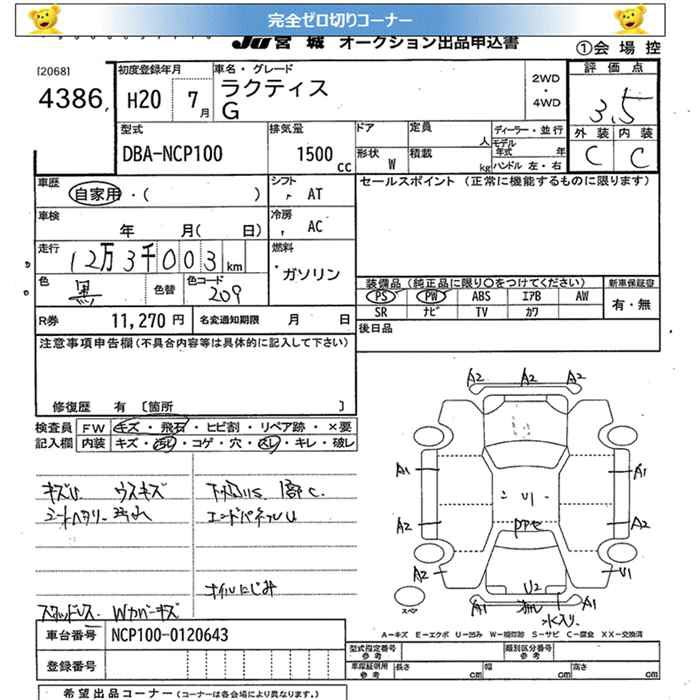 完全ゼロ切りコーナー
JU 宮城 オークション出品申込書
①会場控
[2068]
4386
初度登録年月
H20 7月
車名・グレード
ラクティス
G
2WD
・
4WD
評価点
3.5
外装 内装
C C
型式
DBA-NCP100
排気量
1500 cc
ドア
形状 W
定員 人
積載 kg
ディーラー・並行
モデル年式 年
ハンドル 左・右
車歴
自家用・( )
シフト
AT
車検
年 月( 日)
冷房
AC
走行
12万3千003 km
燃料
ガソリン
色
黒
色替
色コード
209
R券 11,270 円
名変通知期限 月 日
セールスポイント (正常に機能するものに限ります)
装備品 (純正品に限り〇をつけてください)
新車保証書
PS PW ABS エアB AW
有・無
SR ナビ TV カワ
後日品
注意事項申告欄(不具合内容等は具体的に記入して下さい)
修復歴 有 〔箇所 〕
検査員
記入欄
FW キズ・飛石・ヒビ割・リペア跡・×要
内装 キズ・汚レ・コゲ・穴・スレ・キレ・破レ
キズU ウスキズ
シートヘタリー 汚れ
下廻りS 1部C.
エンドパネルU
オイルにじみ
スタッドレス Wカバーキズ
A2 A2 A2
A1 A1
U1
A2 A2
A2 U1
U2
A1 A1
水入り
スペア
A-キズ E-エクボ U-凹み W-補修跡 S-サビ C-腐食 XX-交換済
車台番号 NCP100-0120643
登録番号
型式指定番号
参考
類別区分番号
参考
車庫証明用
参考
長さ cm
幅 cm
高さ cm
希望出品コーナー (コーナーは各会場により異なります。)